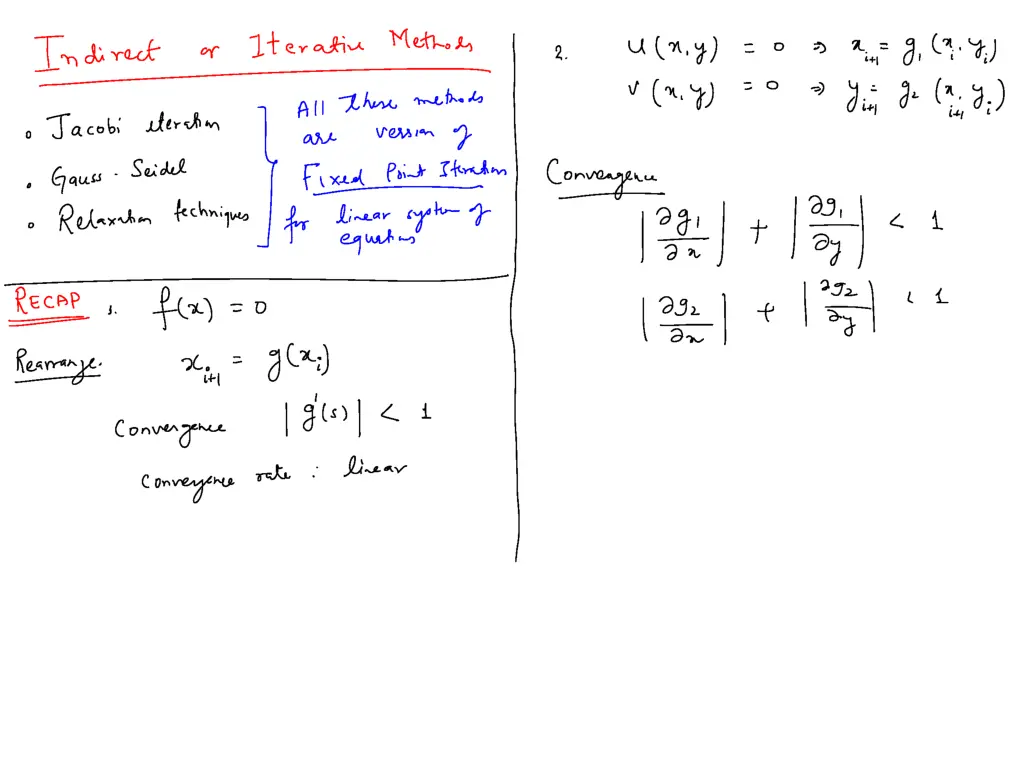 Indirect or Iterative Methods
• Jacobi iteration
• Gauss-Seidel
• Relaxation techniques
All these methods
are version of
Fixed Point Iteration
for linear system of
equations
RECAP 1. f(x) = 0
Rearrange. x_{i+1} = g(x_i)
Convergence |g'(s)| < 1
Convergence rate : linear
2. u(x,y) = 0 ⇒ x_{i+1} = g_1(x_i, y_i)
v(x,y) = 0 ⇒ y_{i+1} = g_2(x_{i+1}, y_i)
Convergence
|∂g_1/∂x| + |∂g_1/∂y| < 1
|∂g_2/∂x| + |∂g_2/∂y| < 1